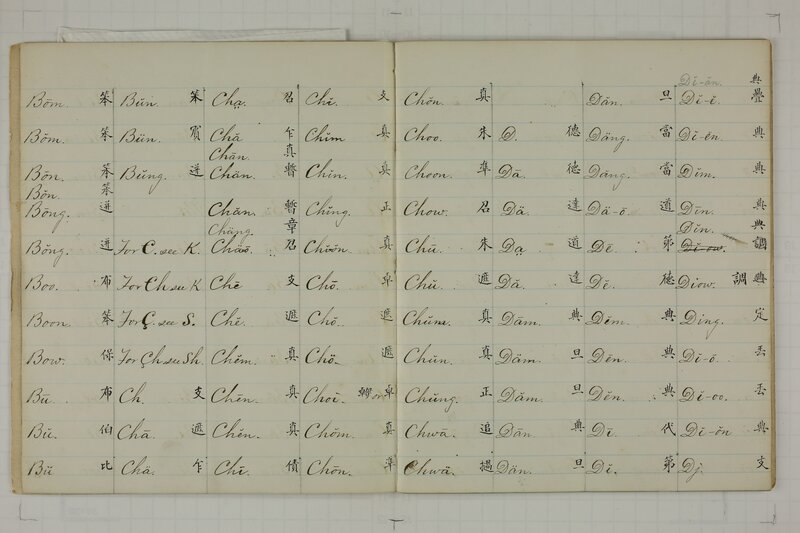 Dĭ-ăn. 典
Bōm. 笨 Bŭn. 笨 Chạ. 召 Chĭ. 支 Chŏn. 真 Dăn. 旦 Dĭ-ĕ. 疊
Bŏm. 笨 Bün. 賓 Chā. 乍 Chĭm 真 Choo. 朱 D. 德 Däng. 當 Dĭ-ĕn. 典
Chān. 真
Bōn. 笨 Bŭng. 迸 Chăn. 暫 Chĭn. 真 Choon. 準 Dā. 德 Dăng. 當 Dĭm. 典
Bŏn. 笨
Bōng. 迸 Chăn. 暫 Chĭng. 正 Chow. 召 Dä. 達 Dä-ō. 道 Dĭn. 典
Chäng. 章 Dĭn. 典
Bŏng. 迸 For C. see K. Chäō. 召 Chĭŏn. 真 Chū. 朱 Dạ. 道 Dē. 第 Dĭ-ow. 調
Boo. 布 For Ch see K Chē 支 Chō. 卓 Chŭ. 遮 Dă. 達 Dĕ. 德 Diow. 調 典
Boon. 笨 For Ç. see S. Chĕ. 遮 Chŏ. 遮 Chŭm. 真 Dām. 典 Dĕm. 典 Ding. 定
Bow. 保 For Çh see Sh. Chĕm. 真 Chŏ. 遮 Chŭn. 真 Däm. 旦 Dĕn. 典 Dĭ-ō. 丟
Bū. 布 Ch. 支 Chĕn. 真 Choi. 轉 or 卓 Chŭng. 正 Dăm. 旦 Dĕn. 典 Dĭ-oo. 丟
Bŭ. 伯 Chā. 遮 Chĕn. 真 Chŏm. 真 Chwā. 追 Dān 典 Dī. 代 Dĭ-ŏn 典
Bü 比 Chă. 乍 Chī. 債 Chōn. 準 Chwă. 撾 Dän. 旦 Dĭ. 第 Dj. 支